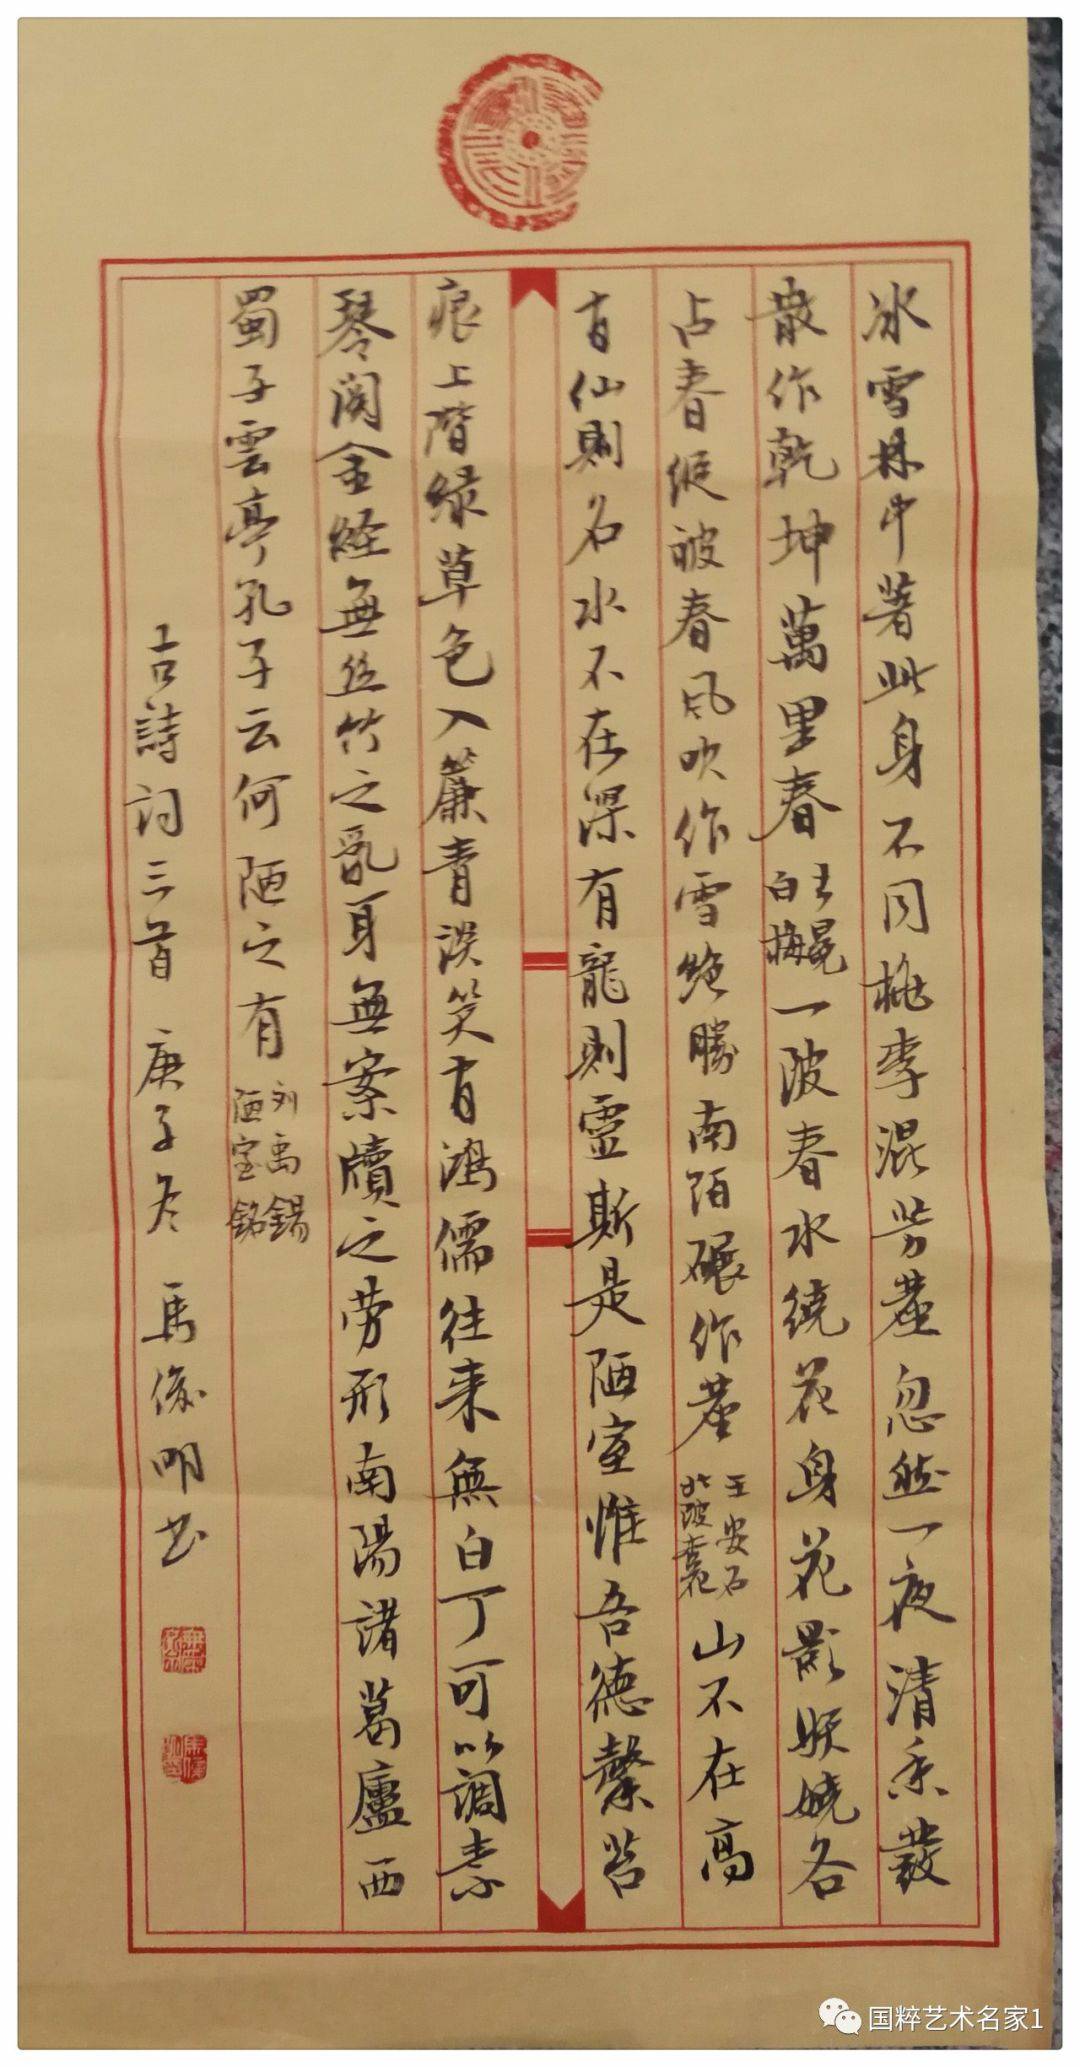 冰雪林中著此身不同桃李混芳塵忽然一夜清香發
散作乾坤萬里春王冕白梅一陂春水绕花身花影妖嬈各
占春縱被春風吹作雪絶勝南陌碾作塵王安石北陂杏花山不在高
有仙則名水不在深有龍則靈斯是陋室惟吾德馨苔
痕上階绿草色入簾青談笑有鴻儒往来無白丁可以調素
琴閲金経無丝竹之亂耳無案牘之劳形南陽諸葛廬西
蜀子雲亭孔子云何陋之有刘禹錫陋室銘
古詩詞三首 庚子冬 馬俊明书
国粹艺术名家1